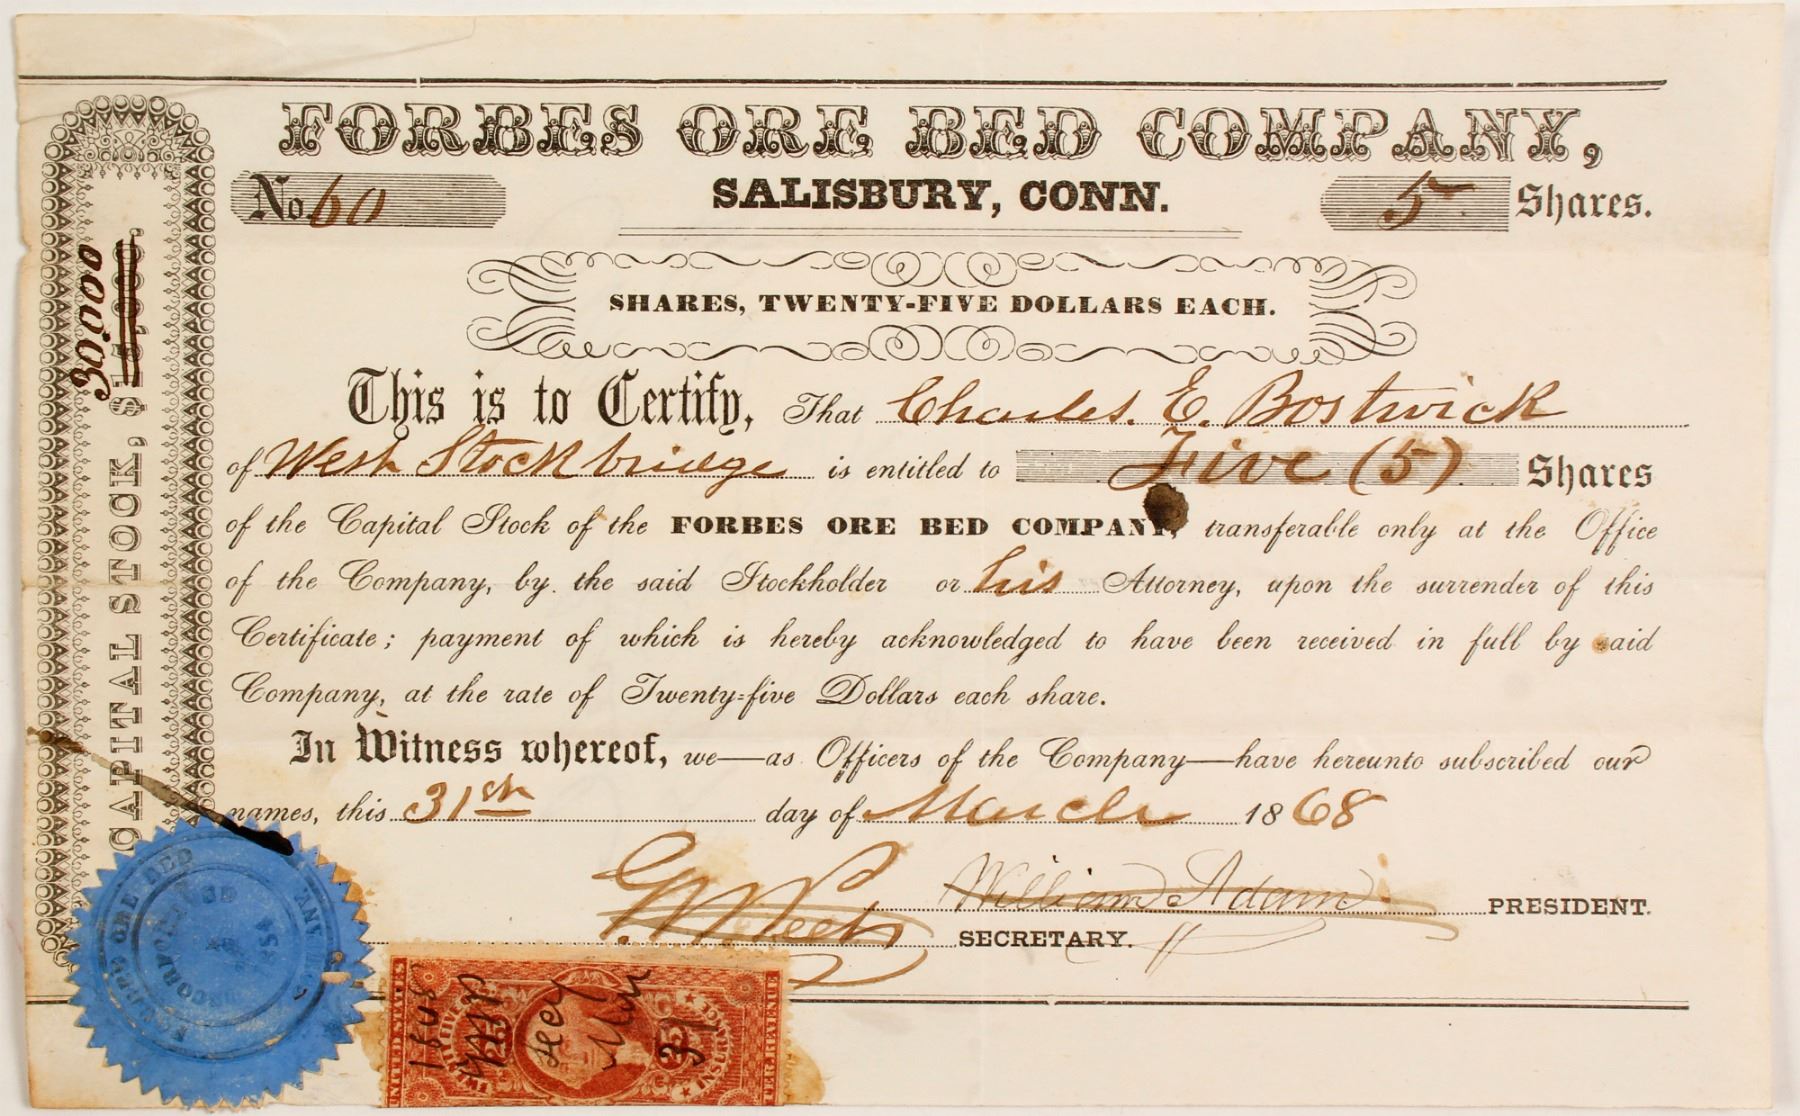 FORBES ORE BED COMPANY,
No. 60
SALISBURY, CONN.
5 Shares.
SHARES, TWENTY-FIVE DOLLARS EACH.
This is to Certify, That Charles. E. Bostwick
of West Stockbridge is entitled to Five (5) Shares
of the Capital Stock of the FORBES ORE BED COMPANY, transferable only at the Office
of the Company, by the said Stockholder or his Attorney, upon the surrender of this
Certificate; payment of which is hereby acknowledged to have been received in full by said
Company, at the rate of Twenty-five Dollars each share.
In Witness whereof, we—as Officers of the Company—have hereunto subscribed our
names, this 31st day of March 1868
William Adam PRESIDENT.
SECRETARY.
CAPITAL STOCK, $
30,000
ORE BED
UNITED STATES
INTER. REVENUE
INSURANCE
25
1868
Secy
Mar
31